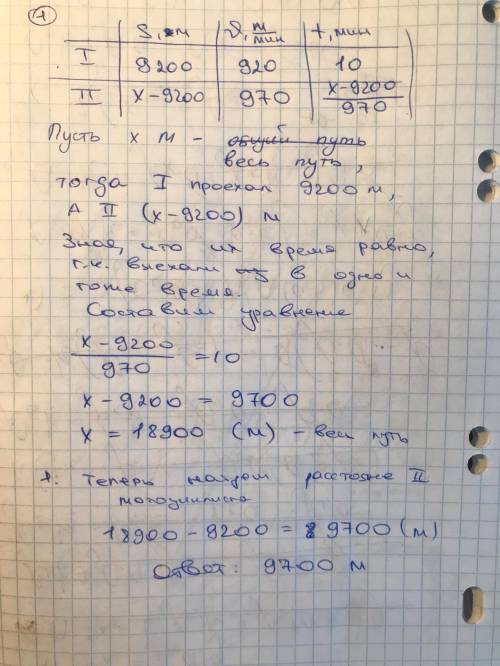 1
S, м | υ, м/мин | t, мин
I | 9200 | 920 | 10
II | x-9200 | 970 | x-9200/970
Пусть x м - общий путь
весь путь,
тогда I проехал 9200 м,
А II (x-9200) м
Зная, что их время равно,
т.к. выехали в одно и
тоже время.
Составим уравнение
x-9200/970 =10
x-9200 = 9700
x = 18900 (м) - весь путь
Теперь найдем расстояние II
мотоциклиста
18900-9200 = 9700 (м)
Ответ: 9700 м